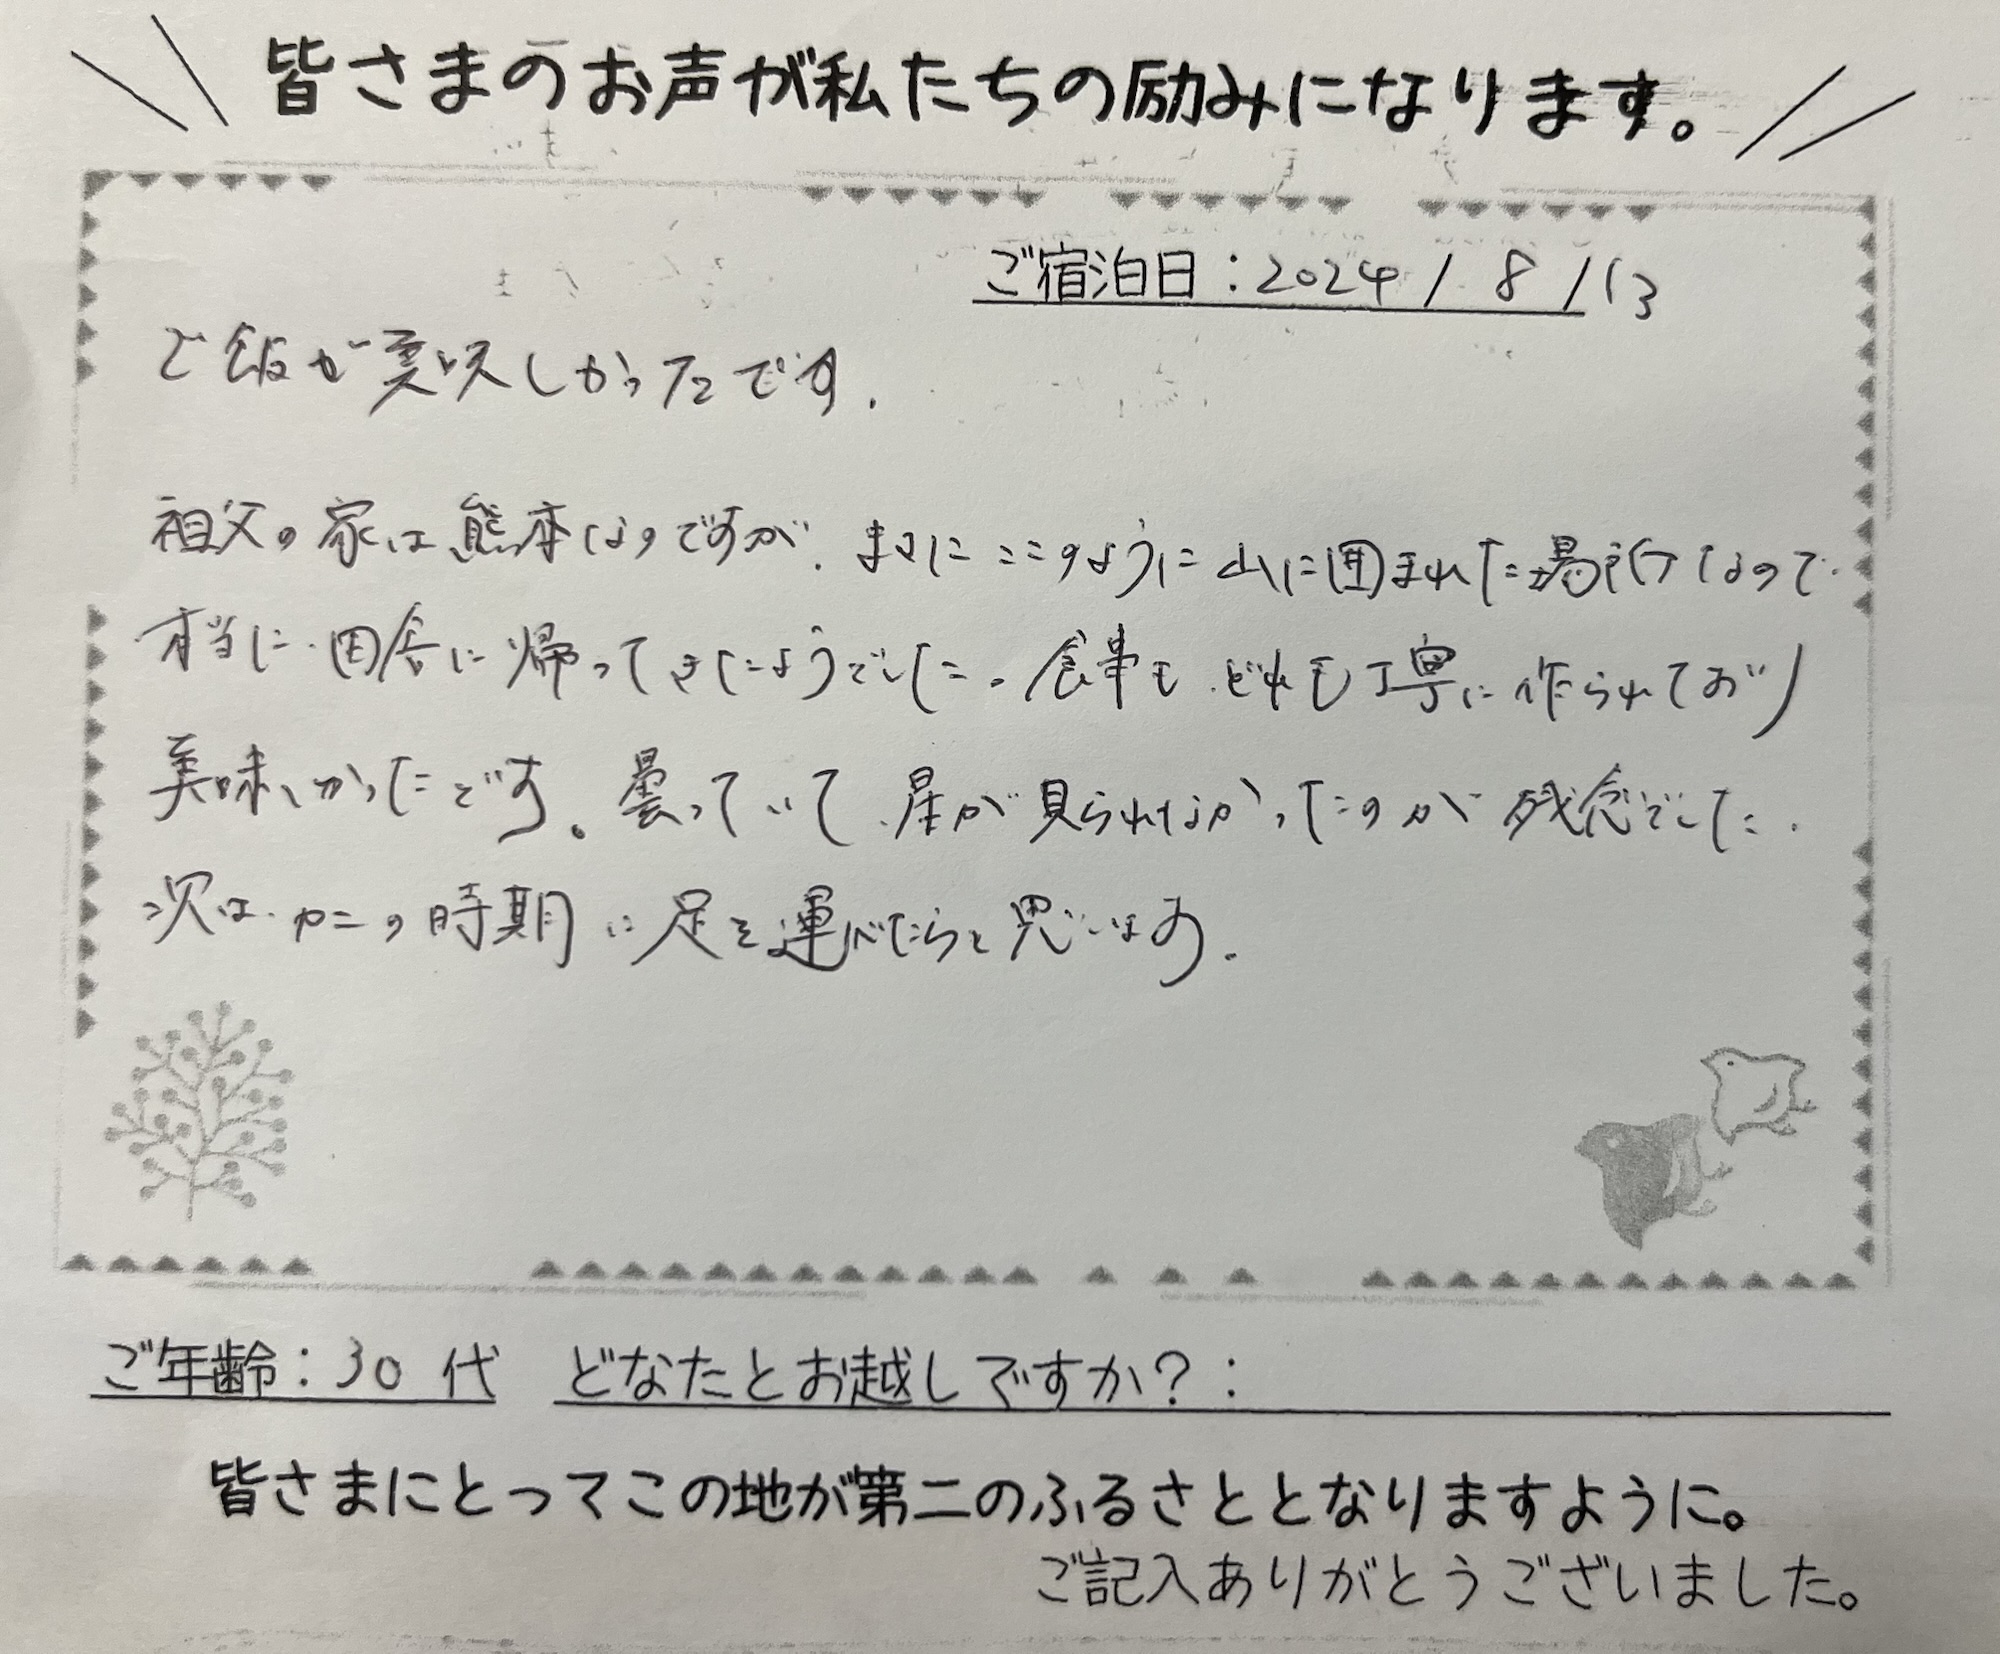 皆さまのお声が私たちの励みになります。
ご宿泊日：2024 / 8 / 13
ご飯が美味しかったです.
祖父の家は熊本なのですが、まさにここのように山に囲まれた場所なので、
本当に田舎に帰ってきたようでした。食事もどれも丁寧に作られており
美味しかったです。曇っていて、星が見られなかったのが残念でした.
次は、カニの時期に足を運べたらと思います.
ご年齢：30 代 どなたとお越しですか？：
皆さまにとってこの地が第二のふるさととなりますように。
ご記入ありがとうございました。